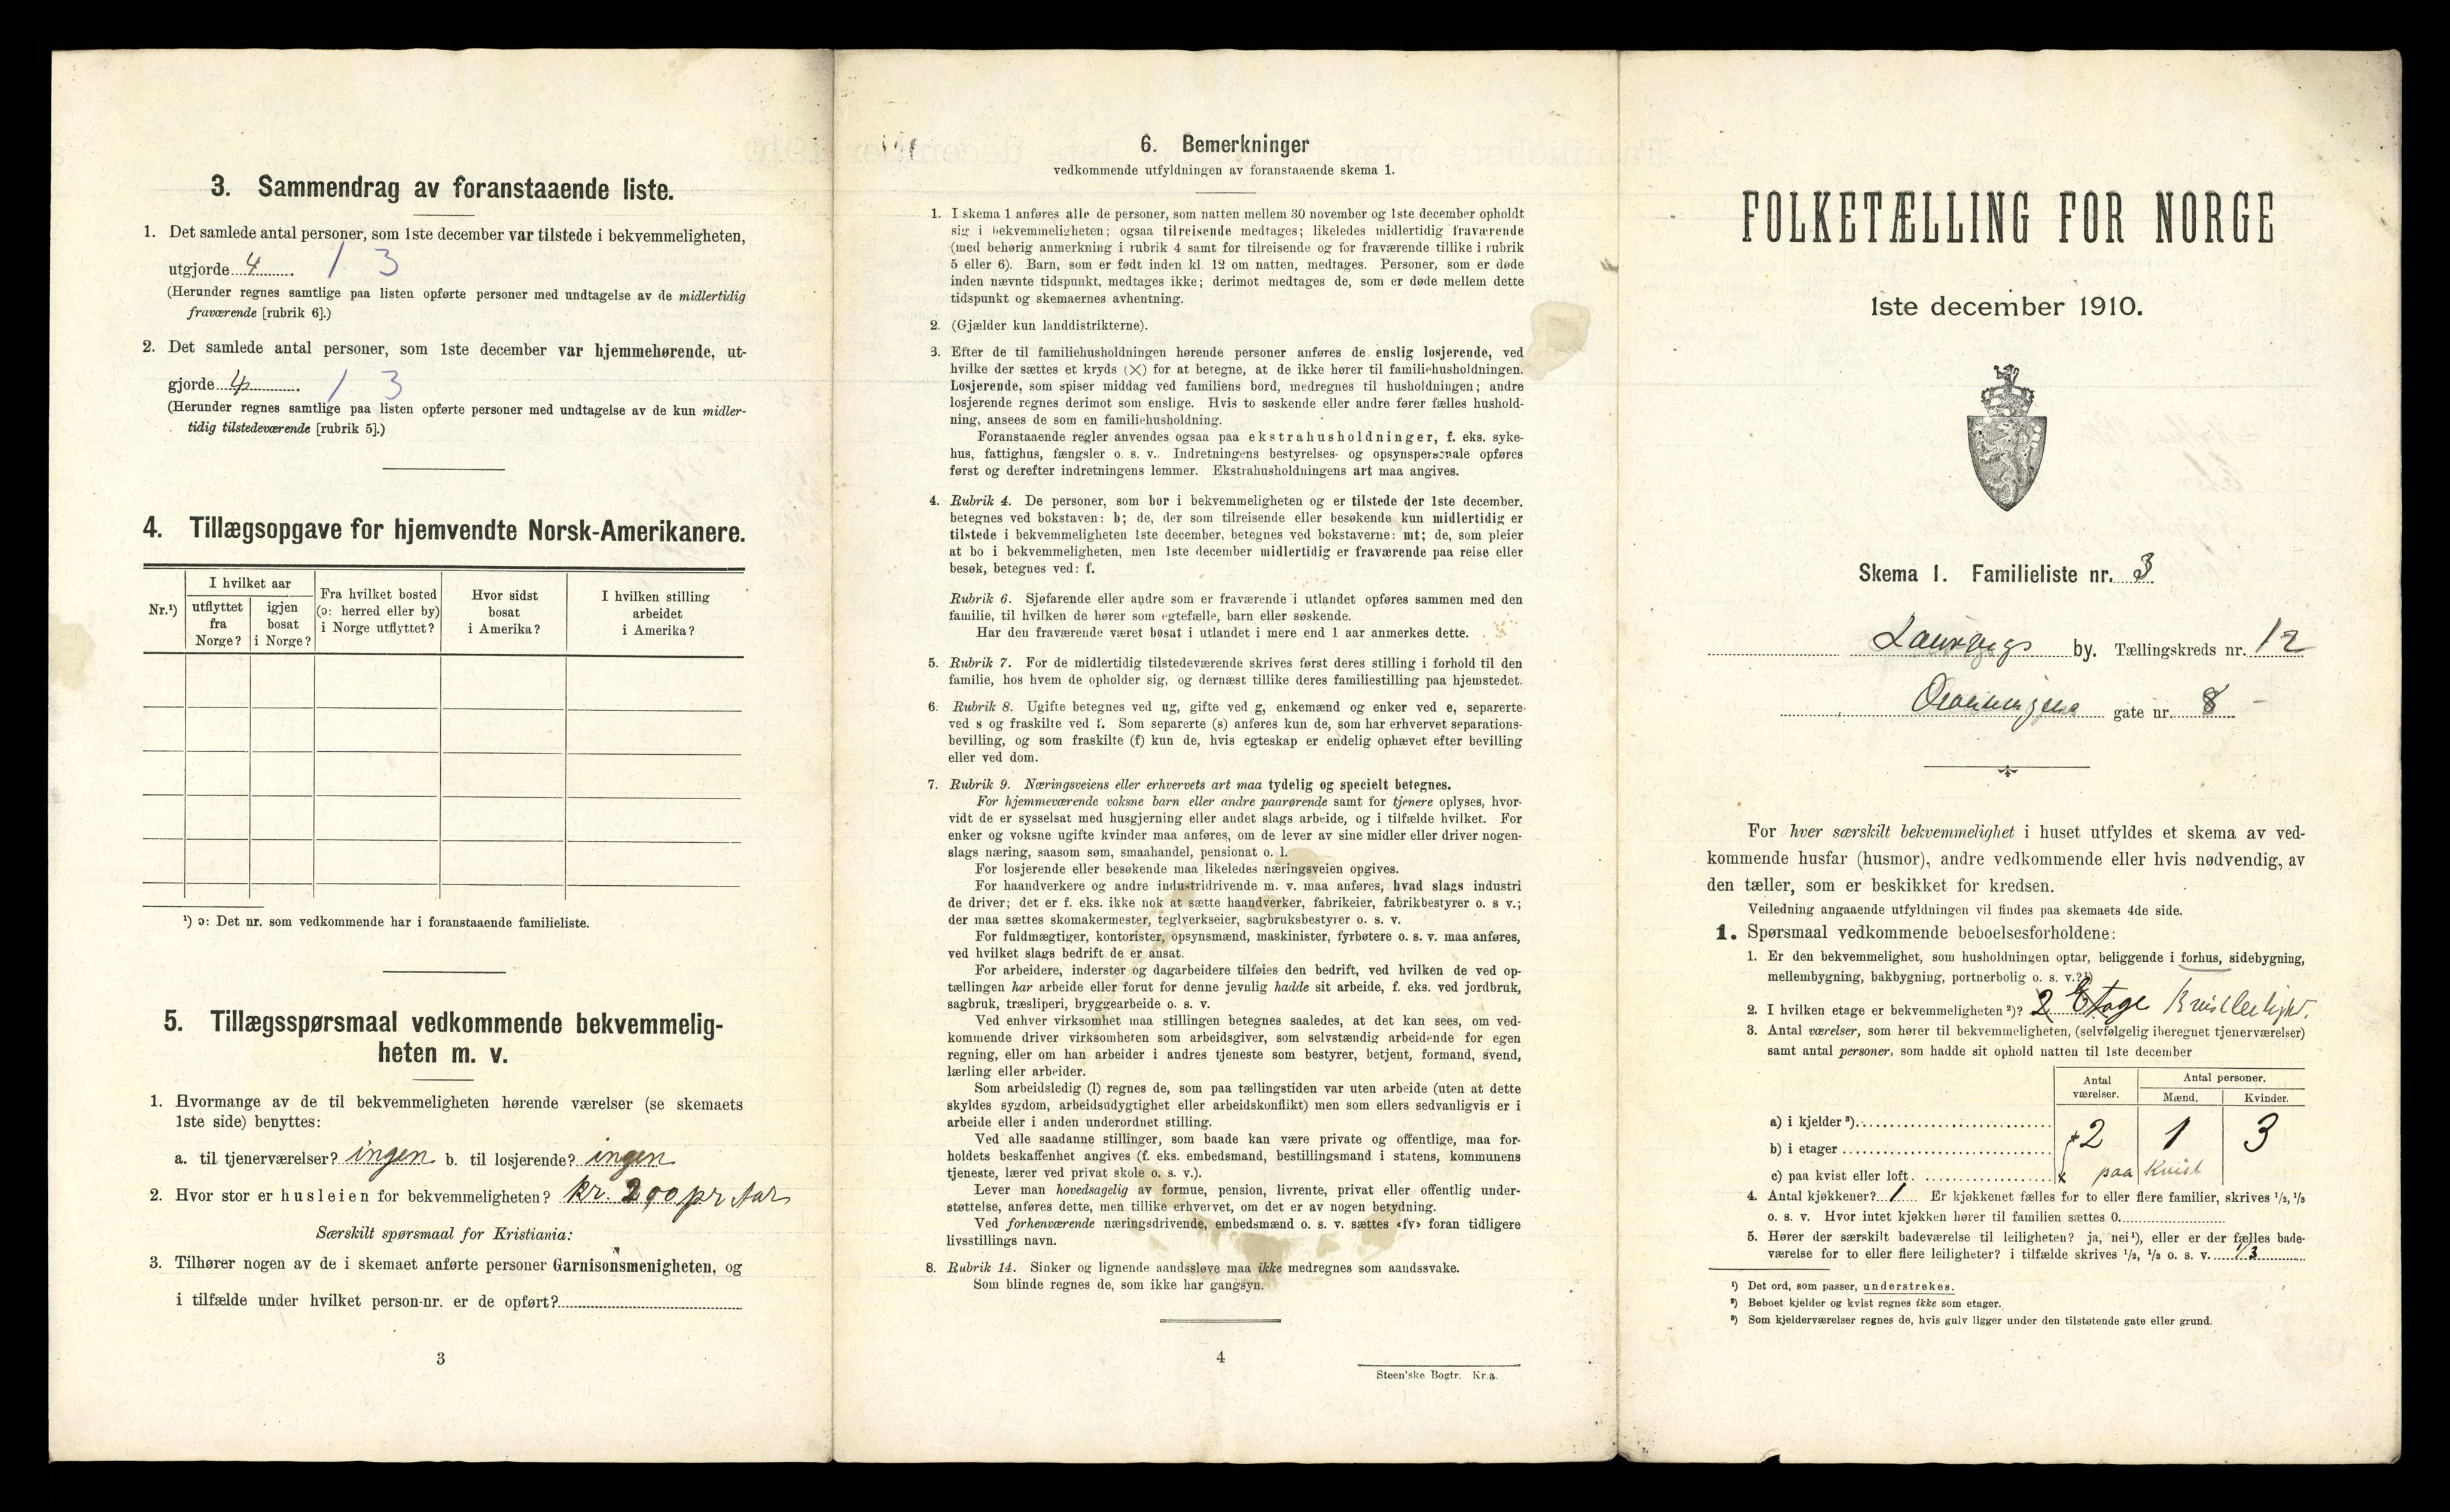 3. Sammendrag av foranstaaende liste.
1. Det samlede antal personer, som 1ste december var tilstede i bekvemmeligheten,
utgjorde 4. 1 3
(Herunder regnes samtlige paa listen opførte personer med undtagelse av de midlertidig
fraværende [rubrik 6].)
2. Det samlede antal personer, som 1ste december var hjemmehørende, ut-
gjorde 4. 1 3
(Herunder regnes samtlige paa listen opførte personer med undtagelse av de kun midler-
tidig tilstedeværende [rubrik 5].)
4. Tillægsopgave for hjemvendte Norsk-Amerikanere.
Nr.¹)
I hvilket aar
utflyttet fra Norge?
igjen bosat i Norge?
Fra hvilket bosted (ɔ: herred eller by) i Norge utflyttet?
Hvor sidst bosat i Amerika?
I hvilken stilling arbeidet i Amerika?
¹) ɔ: Det nr. som vedkommende har i foranstaaende familieliste.
5. Tillægsspørsmaal vedkommende bekvemmelig-
heten m. v.
1. Hvormange av de til bekvemmeligheten hørende værelser (se skemaets
1ste side) benyttes:
a. til tjenerværelser? ingen b. til losjerende? ingen
2. Hvor stor er husleien for bekvemmeligheten? kr. 200 pr Aar
Særskilt spørsmaal for Kristiania:
3. Tilhører nogen av de i skemaet anførte personer Garnisonsmenigheten, og
i tilfælde under hvilket person-nr. er de opført?
3
6. Bemerkninger
vedkommende utfyldningen av foranstaaende skema 1.
1. I skema 1 anføres alle de personer, som natten mellem 30 november og 1ste december opholdt
sig i bekvemmeligheten; ogsaa tilreisende medtages; likeledes midlertidig fraværende
(med behørig anmerkning i rubrik 4 samt for tilreisende og for fraværende tillike i rubrik
5 eller 6). Barn, som er født inden kl. 12 om natten, medtages. Personer, som er døde
inden nævnte tidspunkt, medtages ikke; derimot medtages de, som er døde mellem dette
tidspunkt og skemaernes avhentning.
2. (Gjælder kun landdistrikterne).
3. Efter de til familiehusholdningen hørende personer anføres de enslig losjerende, ved
hvilke der sættes et kryds (X) for at betegne, at de ikke hører til familiehusholdningen.
Losjerende, som spiser middag ved familiens bord, medregnes til husholdningen; andre
losjerende regnes derimot som enslige. Hvis to søskende eller andre fører fælles hushold-
ning, ansees de som en familiehusholdning.
Foranstaaende regler anvendes ogsaa paa ekstrahusholdninger, f. eks. syke-
hus, fattighus, fængsler o. s. v.. Indretningens bestyrelses- og opsynspersonale opføres
først og derefter indretningens lemmer. Ekstrahusholdningens art maa angives.
4. Rubrik 4. De personer, som bor i bekvemmeligheten og er tilstede der 1ste december,
betegnes ved bokstaven: b; de, der som tilreisende eller besøkende kun midlertidig er
tilstede i bekvemmeligheten 1ste december, betegnes ved bokstaverne: mt; de, som pleier
at bo i bekvemmeligheten, men 1ste december midlertidig er fraværende paa reise eller
besøk, betegnes ved: f.
Rubrik 6. Sjøfarende eller andre som er fraværende i utlandet opføres sammen med den
familie, til hvilken de hører som egtefælle, barn eller søskende.
Har den fraværende været bosat i utlandet i mere end 1 aar anmerkes dette.
5. Rubrik 7. For de midlertidig tilstedeværende skrives først deres stilling i forhold til den
familie, hos hvem de opholder sig, og dernæst tillike deres familiestilling paa hjemstedet.
6. Rubrik 8. Ugifte betegnes ved ug, gifte ved g, enkemænd og enker ved e, separerte
ved s og fraskilte ved f. Som separerte (s) anføres kun de, som har erhvervet separations-
bevilling, og som fraskilte (f) kun de, hvis egteskap er endelig ophævet efter bevilling
eller ved dom.
7. Rubrik 9. Næringsveiens eller erhvervets art maa tydelig og specielt betegnes.
For hjemmeværende voksne barn eller andre paarørende samt for tjenere oplyses, hvor-
vidt de er sysselsat med husgjerning eller andet slags arbeide, og i tilfælde hvilket. For
enker og voksne ugifte kvinder maa anføres, om de lever av sine midler eller driver nogen-
slags næring, saasom søm, smaahandel, pensionat o. l.
For losjerende eller besøkende maa likeledes næringsveien opgives.
For haandverkere og andre industridrivende m. v. maa anføres, hvad slags industri
de driver; det er f. eks. ikke nok at sætte haandverker, fabrikeier, fabrikbestyrer o. s v.;
der maa sættes skomakermester, teglverkseier, sagbruksbestyrer o. s. v.
For fuldmægtiger, kontorister, opsynsmænd, maskinister, fyrbøtere o. s. v. maa anføres,
ved hvilket slags bedrift de er ansat.
For arbeidere, inderster og dagarbeidere tilføies den bedrift, ved hvilken de ved op-
tællingen har arbeide eller forut for denne jevnlig hadde sit arbeide, f. eks. ved jordbruk,
sagbruk, træsliperi, bryggearbeide o. s. v.
Ved enhver virksomhet maa stillingen betegnes saaledes, at det kan sees, om ved-
kommende driver virksomheten som arbeidsgiver, som selvstændig arbeidende for egen
regning, eller om han arbeider i andres tjeneste som bestyrer, betjent, formand, svend,
lærling eller arbeider.
Som arbeidsledig (l) regnes de, som paa tællingstiden var uten arbeide (uten at dette
skyldes sygdom, arbeidsudygtighet eller arbeidskonflikt) men som ellers sedvanligvis er i
arbeide eller i anden underordnet stilling.
Ved alle saadanne stillinger, som baade kan være private og offentlige, maa for-
holdets beskaffenhet angives (f. eks. embedsmand, bestillingsmand i statens, kommunens
tjeneste, lærer ved privat skole o. s. v.).
Lever man hovedsagelig av formue, pension, livrente, privat eller offentlig under-
støttelse, anføres dette, men tillike erhvervet, om det er av nogen betydning.
Ved forhenværende næringsdrivende, embedsmænd o. s. v. sættes «fv» foran tidligere
livsstillings navn.
8. Rubrik 14. Sinker og lignende aandssløve maa ikke medregnes som aandssvake.
Som blinde regnes de, som ikke har gangsyn.
4
Steen'ske Bogtr. Kr.a.
FOLKETÆLLING FOR NORGE
1ste december 1910.
Skema 1. Familieliste nr. 3
Laurvigs by. Tællingskreds nr. 12
gate nr. 8
For hver særskilt bekvemmelighet i huset utfyldes et skema av ved-
kommende husfar (husmor), andre vedkommende eller hvis nødvendig, av
den tæller, som er beskikket for kredsen.
Veiledning angaaende utfyldningen vil findes paa skemaets 4de side.
1. Spørsmaal vedkommende beboelsesforholdene:
1. Er den bekvemmelighet, som husholdningen optar, beliggende i forhus, sidebygning,
mellembygning, bakbygning, portnerbolig o. s. v.?¹)
2. I hvilken etage er bekvemmeligheten²)? 2 Etage Kvistleilighet.
3. Antal værelser, som hører til bekvemmeligheten, (selvfølgelig iberegnet tjenerværelser)
samt antal personer, som hadde sit ophold natten til 1ste december
Antal værelser.
Antal personer.
Mænd. Kvinder.
a) i kjelder³)
b) i etager 2 1 3
c) paa kvist eller loft. x paa Kvist
4. Antal kjøkkener? 1 Er kjøkkenet fælles for to eller flere familier, skrives ¹/₂, ¹/₃
o. s. v. Hvor intet kjøkken hører til familien sættes 0.
5. Hører der særskilt badeværelse til leiligheten? ja, nei¹), eller er der fælles bade-
værelse for to eller flere leiligheter? i tilfælde skrives ¹/₂, ¹/₃ o. s. v. 1/3
¹) Det ord, som passer, understrekes.
²) Beboet kjelder og kvist regnes ikke som etager.
³) Som kjelderværelser regnes de, hvis gulv ligger under den tilstøtende gate eller grund.